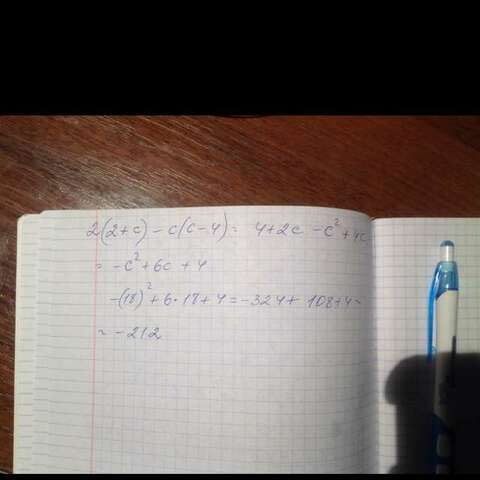 2(2+c) - c(c-4) = 4+2c - c² + 4c
= -c² + 6c + 4
-(18)² + 6·18 + 4 = -324 + 108 + 4 =
= -212